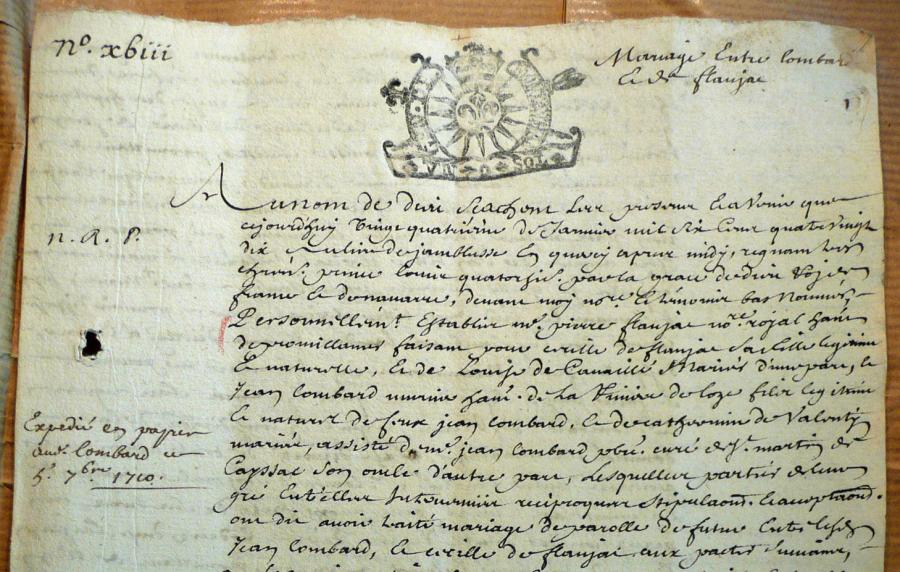 No. xbiii
Mariage Entre lombard
E de flaujac
n. R. P.
Au nom de dieu Scachent tous presens Et avenir que
cejourdhuy vingt quatriesme de Janvier mil six cens quatre vingt
dix au lieu de jamblusse En quercy apres midy, regnant tres
chres. prince louis quatorsie. par la grace de dieu Roy de
france et de navarre, devant moy nore. et tesmoins bas nommés,
Personnellemt. Establis me. pierre flaujac nore. royal hant.
de promillanes faisant pour cecille de flaujac sa fille legitime
Et naturelle, et de Louise de Canaillé Mariés d'une part, et
Jean lombard hant. de la de loze filz legitime
et naturel de feux jean lombard, et de catherine de Valenti
mariés, assisté de me. jean lombard pbre. curé de St. martin de
Cayssac son oncle d'autre part, Lesquelles parties de leur
gré Entr'elles Intervenue reciproque stipulaon. et acceptaon.
ont dit avoir traité mariage de parolle de futur Entre lesd.
Jean lombard, et cecille de flaujac aux pactes suivans,
Expedié en papier
aud. lombard ce
5. 7bre 1710.